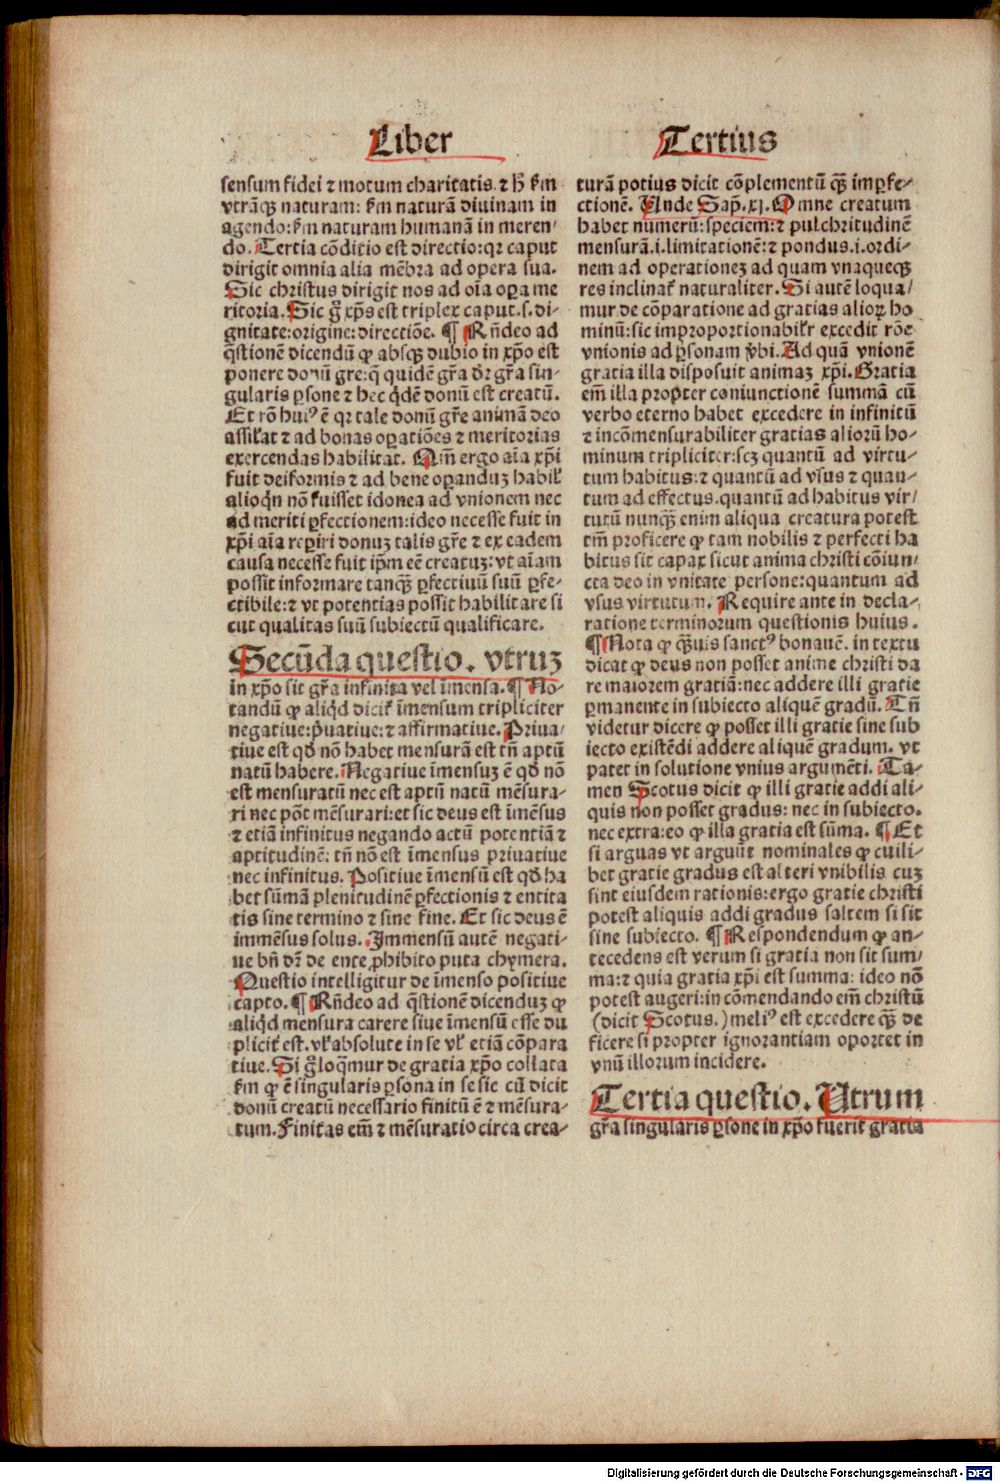 Liber
Tertius
sensum fidei ⁊ motum charitatis. ⁊ ħ ẜm
vtrāqꝫ naturam: ẜm naturā diuinam in
agendo: ẜm naturam humanā in meren⸗
do. Tertia cōditio est directio: qꝛ caput
dirigit omnia alia mēbra ad opera sua.
Sic christus dirigit nos ad oīa oꝑa me
ritoria. Sic g̃ xp̄s est triplex caput. s. di⸗
gnitate: origine: directiōe. ¶ Rn̄deo ad
q̄stionē dicendū ꝙ absqꝫ dubio in xp̄o est
ponere donū gr̄e: q̄ quidē gr̄a dr̄ gr̄a sin⸗
gularis ꝑsone ⁊ hec q̇dē donū est creatū.
Et rō huiꝰ ē qꝛ tale donū gr̄e animā deo
assil̄at ⁊ ad bonas oꝑatiōes ⁊ meritorias
exercendas habilitat. Qm̄ ergo aīa xp̄i
fuit deiformis ⁊ ad bene oꝑanduꝫ habil̄
alioq̇n nō fuisset idonea ad vnionem nec
ad meriti ꝑfectionem: ideo necesse fuit in
xp̄i aīa reꝑiri donuꝫ talis gr̄e ⁊ ex eadem
causa necesse fuit ip̄m eē creatuꝫ: vt aīam
possit informare tanqꝫ̄ ꝑfectiuū suū ꝑfe⸗
ctibile: ⁊ vt potentias possit habilitare si
cut qualitas suū subiectū qualificare.
Secūda questio. vtruꝫ
in xp̄o sit gr̄a infinita vel īmensa. ¶ No⸗
tandū ꝙ aliq̇d dicit̄ īmensum tripliciter
negatiue: p̄uatiue: ⁊ affirmatiue. Priua⸗
tiue est qd̄ nō habet mensurā est tn̄ aptū
natū habere. Negatiue īmensuꝫ ē qd̄ nō
est mensuratū nec est aptū natū mēsura⸗
ri nec pōt mēsurari: et sic deus est īmēsus
⁊ etiā infinitus negando actū potentiā ⁊
aptitudinē: tn̄ nō est īmensus priuatiue
nec infinitus. Positiue īmensū est qd̄ ha
bet sūmā plenitudinē ꝑfectionis ⁊ entita
tis sine termino ⁊ sine fine. Et sic deus ē
immēsus solus. Immensū autē negati⸗
ue bn̄ dr̄ de ente ꝓhibito puta chymera.
Questio intelligitur de īmenso positiue
capto. ¶ Rn̄deo ad q̄stionē dicenduꝫ ꝙ
aliq̇d mensura carere siue īmensū esse du
plicit̄ est. vl̄ absolute in se vl̄ etiā cōpara
tiue. Si g̃ loq̄mur de gratia xp̄o collata
ẜm ꝙ ē singularis ꝑsona in se sic cū dicit
donū creatū necessario finitū ē ⁊ mēsura⸗
tum. Finitas em̄ ⁊ mēsuratio circa crea⸗
turā potius dicit cōplementū qꝫ̄ imꝑfe⸗
ctionē. Unde Sap̄. xj. Omne creatum
habet numerū: speciem: ⁊ pulchritudinē
mensurā. i. limitationē: ⁊ pondus. i. ordi⸗
nem ad operationeꝫ ad quam vnaqueqꝫ
res inclinat̄ naturaliter. Si autē loqua⸗
mur de cōparatione ad gratias alioꝝ ho
minū: sic improportionabilr̄ excedit rōe
vnionis ad ꝑsonam v̄bi. Ad quā vnionē
gratia illa disposuit animaꝫ xp̄i. Gratia
em̄ illa propter coniunctionē summā cū
verbo eterno habet excedere in infinitū
⁊ incōmensurabiliter gratias aliorū ho⸗
minum tripliciter: scꝫ quantū ad virtu⸗
tum habitus: ⁊ quantū ad vsus ⁊ quan⸗
tum ad effectus. quantū ad habitus vir⸗
tutū nunqꝫ̄ enim aliqua creatura potest
tm̄ proficere ꝙ tam nobilis ⁊ perfecti ha
bitus sit capax sicut anima christi cōiun⸗
cta deo in vnitate persone: quantum ad
vsus virtutum. Require ante in decla⸗
ratione terminorum questionis huius.
¶ Nota ꝙ qꝫ̄uis sanctꝰ bonauē. in textu
dicat ꝙ deus non posset anime christi da
re maiorem gratiā: nec addere illi gratie
ꝑmanente in subiecto aliquē gradū. Tn̄
videtur dicere ꝙ posset illi gratie sine sub
iecto existēdi addere aliquē gradum. vt
patet in solutione vnius argumēti. Ta⸗
men Scotus dicit ꝙ illi gratie addi ali⸗
quis non posset gradus: nec in subiecto.
nec extra: eo ꝙ illa gratia est sūma. ¶ Et
si arguas vt arguūt nominales ꝙ cuili⸗
bet gratie gradus est alteri vnibilis cuꝫ
sint eiusdem rationis: ergo gratie christi
potest aliquis addi gradus saltem si sit
sine subiecto. ¶ Respondendum ꝙ an⸗
tecedens est verum si gratia non sit sum⸗
ma: ⁊ quia gratia xp̄i est summa: ideo nō
potest augeri: in cōmendando em̄ christū
(dicit Scotus.) meliꝰ est excedere qꝫ̄ de
ficere si propter ignorantiam oportet in
vnū illorum incidere.
Tertia questio. Utrum
gr̄a singularis ꝑsone in xp̄o fuerit gratia
Digitalisierung gefördert durch die Deutsche Forschungsgemeinschaft - DFG